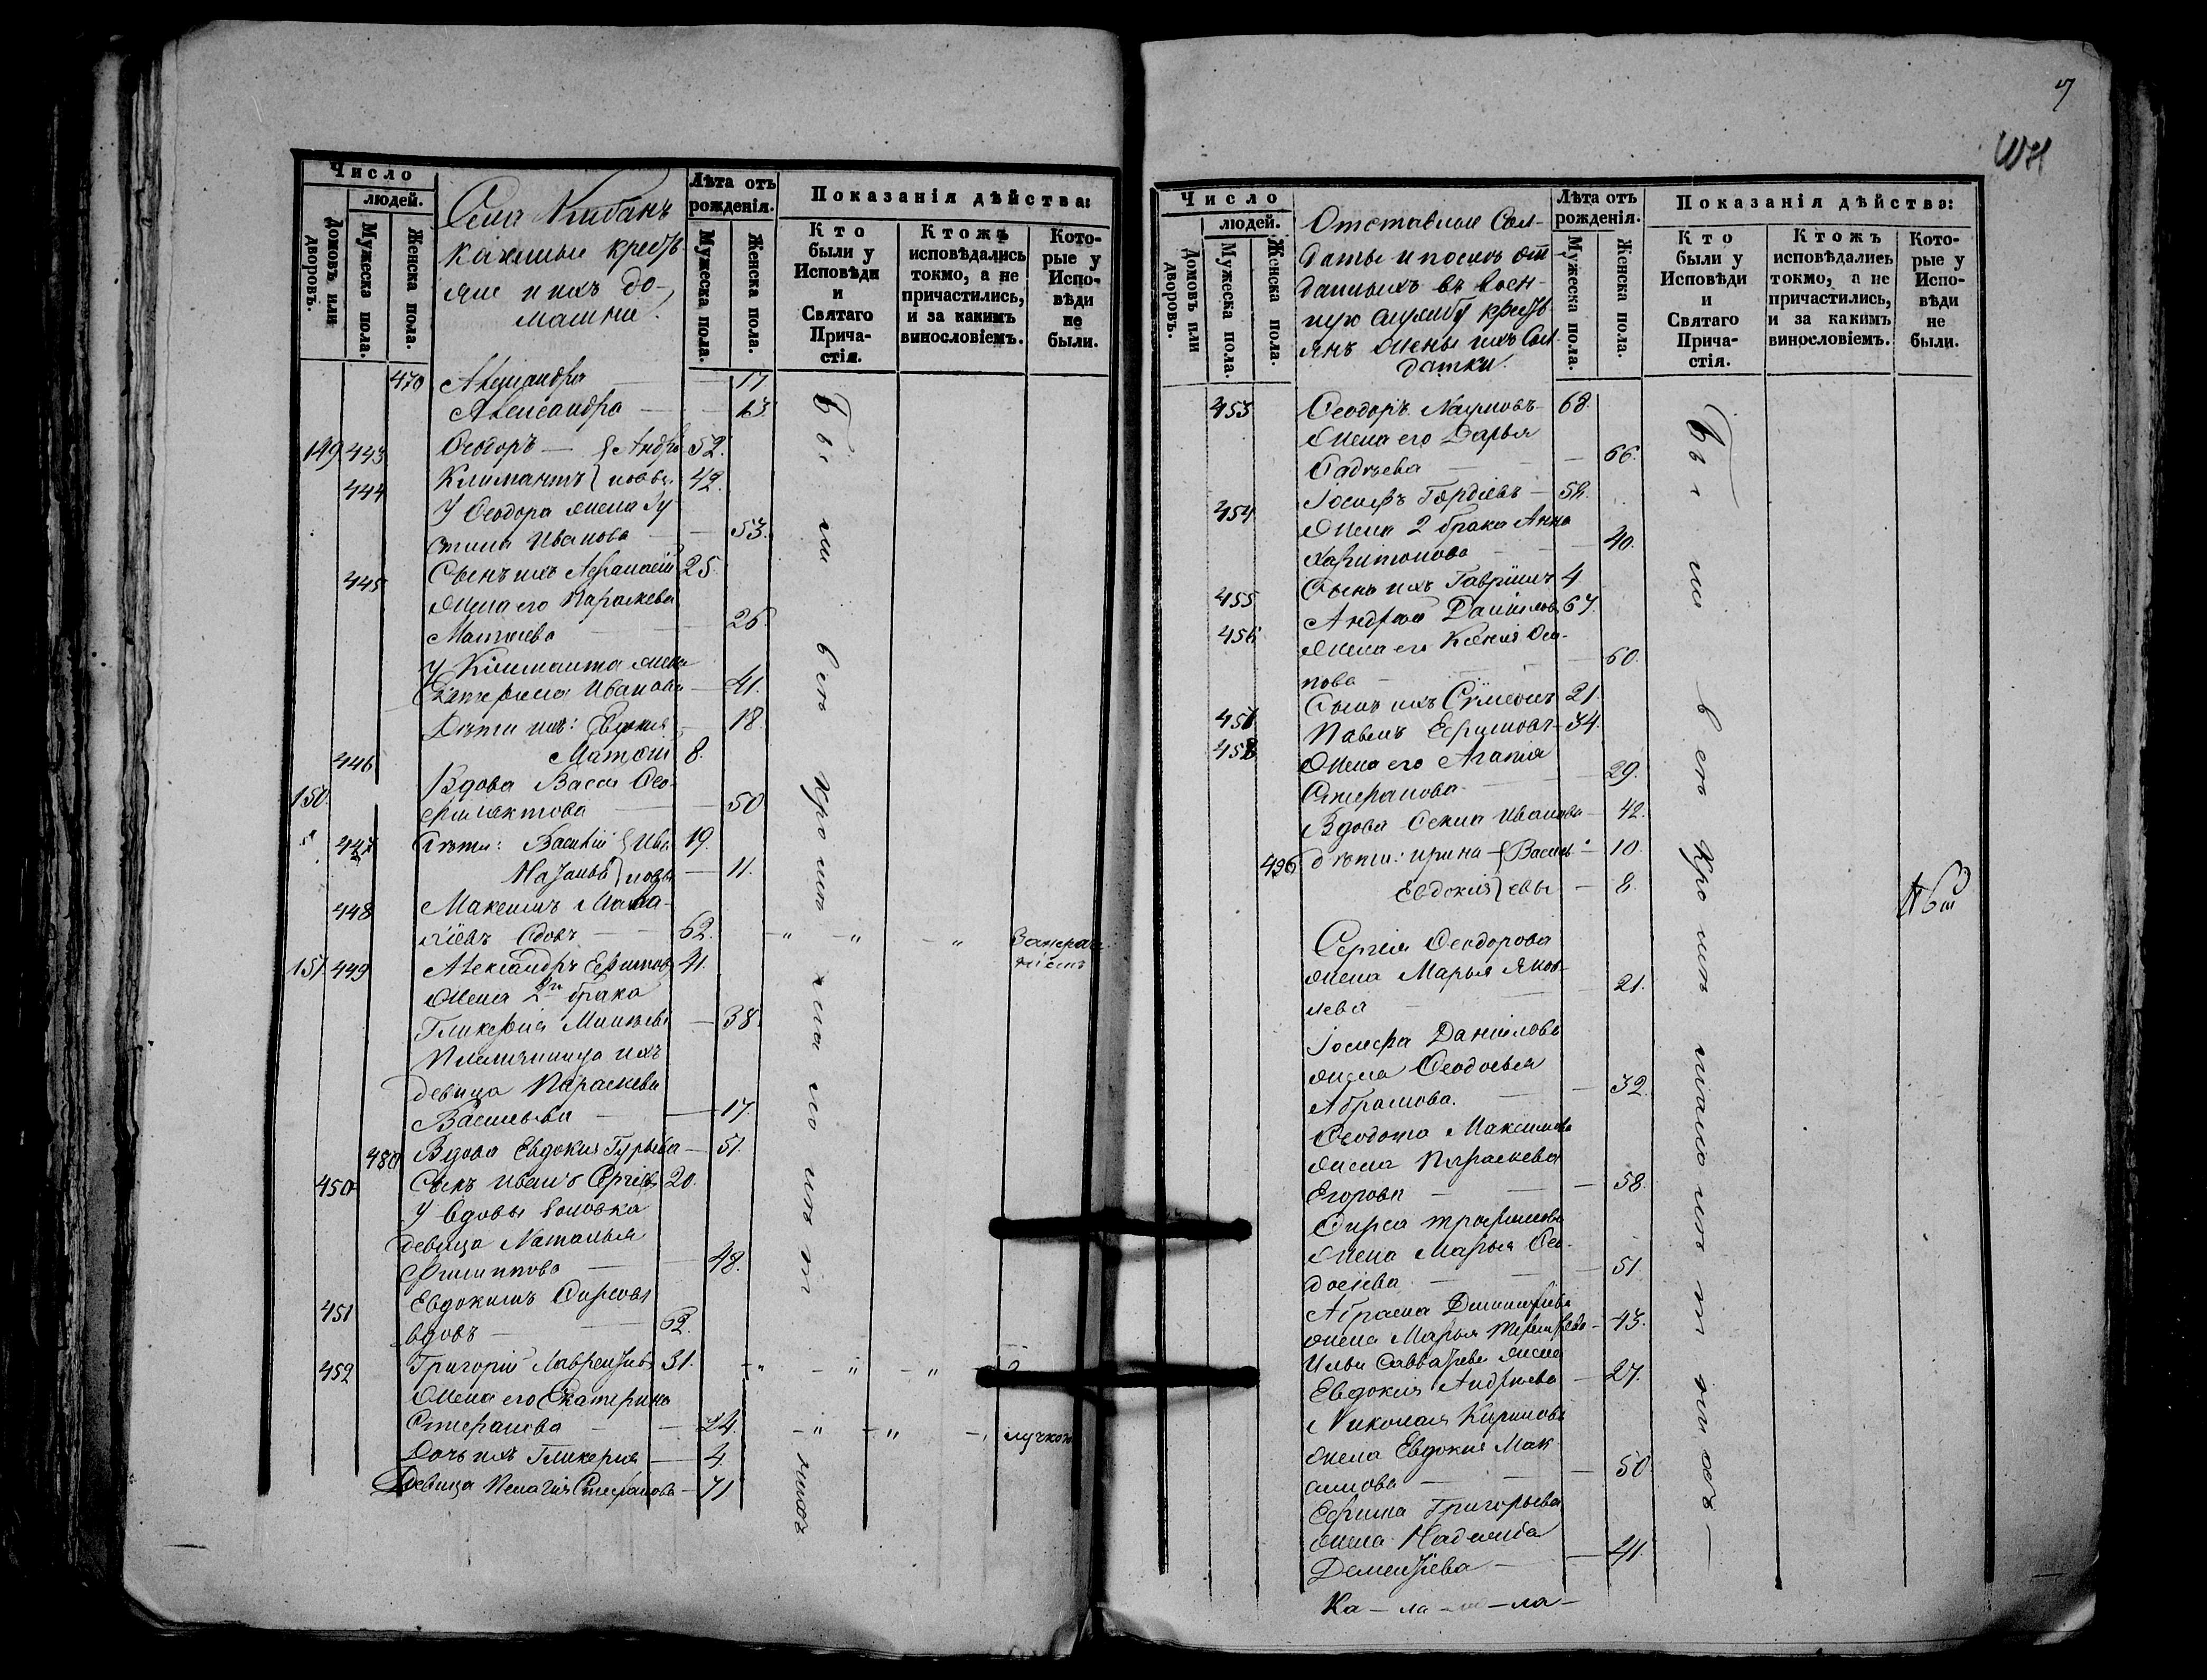 Число
людей.
Домовъ или дворовъ.
Мужеска пола.
Женска пола.
Села
казенные кресть
яне и ихъ до-
машни.
Лѣта отъ
рожденія.
Мужеска пола.
Женска пола.
Показанія дѣйства:
Кто
были у
Исповѣди
и
Святаго
Прича-
стія.
Ктожъ
исповѣдались
токмо, а не
причастились,
и за какимъ
винословіемъ.
Кото-
рые у
Испо-
вѣди
не
были.
470 — 17
Александра — 13
149 443 Ѳеодоръ — Андре 52.
444 Климантъ евы 42.
У Ѳеодора жена Іу-
стина Иванова — 53.
445 Сынъ ихъ Афанасій 25.
Жена его Параскева
Матѳеева — 26.
У Климанта жена
Екатерина Иванова — 41.
Дѣти ихъ: Евдокія — 18.
446 Матѳій 8.
150. Вдова Васса Ѳео-
филактова — 50
447 Дѣти: Василій Ива 19.
Наталья новы — 11.
448 Максимъ Матѳ-
ѳіевъ вдовъ — 62. — " — " — "
151 449 Александръ Ефимовъ 41.
Жена 2го брака
Гликерія Минѣева — 38.
Племянница ихъ
девица Параскева
Васильева — 17.
480 Вдова Евдокія Гурьева — 51.
450 Сынъ Иванъ Сергіевъ 20.
У вдовы золовка
девица Наталья
Филиппова — 48.
451 Евдокимъ Фирсовъ
вдовъ — 62.
452 Григорій Лаврентіевъ 31. — " — " — "
Жена его Екатерина
Стефанова — 24. — " — "
Дочь ихъ Гликерія — 4.
Девица Пелагія Стефанова — 71
Были все
7
Число
людей.
Домовъ или дворовъ.
Мужеска пола.
Женска пола.
Отставные Сол-
даты и послѣ от
данныхъ въ воен-
ную службу кресть
янъ жены ихъ Сол-
датки.
Лѣта отъ
рожденія.
Мужеска пола.
Женска пола.
Показанія дѣйства:
Кто
были у
Исповѣди
и
Святаго
Прича-
стія.
Ктожъ
исповѣдались
токмо, а не
причастились,
и за какимъ
винословіемъ.
Кото-
рые у
Испо-
вѣди
не
были.
453 Ѳеодоръ Наумовъ 68.
Жена его Дарья
Фадѣева — 66.
454 Іосифъ Гордѣевъ —
Жена 2 брака Анна
Харитонова — 40.
455 Сынъ ихъ Гавріилъ 4
456 Андрей Даніиловъ 67.
Жена его Ксенія Оси-
пова — 60.
457 Сынъ ихъ Сѵмеонъ 21.
458 Павелъ Ефимовъ — 34.
Жена его Агапія
Стефанова — 29.
Вдова Иванова — 42.
496 дѣти: Ирина — Василь — 10.
Евдокія евы — 8.
Сергія Ѳеодорова
жена Марья Яков-
лева — 21.
Іосифа Даніилова
жена Ѳеодосья
Абрамова. — 32.
Ѳеодота Максимова
жена Параскева
Егорова — 58.
Фирса Трофимова
жена Марья Ѳео-
досіева — 51.
Абрама Димитріева
жена Марья — 43.
Ильи Савватіева жена
Евдокія Андреева — 27.
Николая Кирилова
жена Евдокія Мак
симова — 50.
Ефима Григорьева
жена Надежда
Дементіева — 41.
Были все кромѣ
Ка — ла — ла —